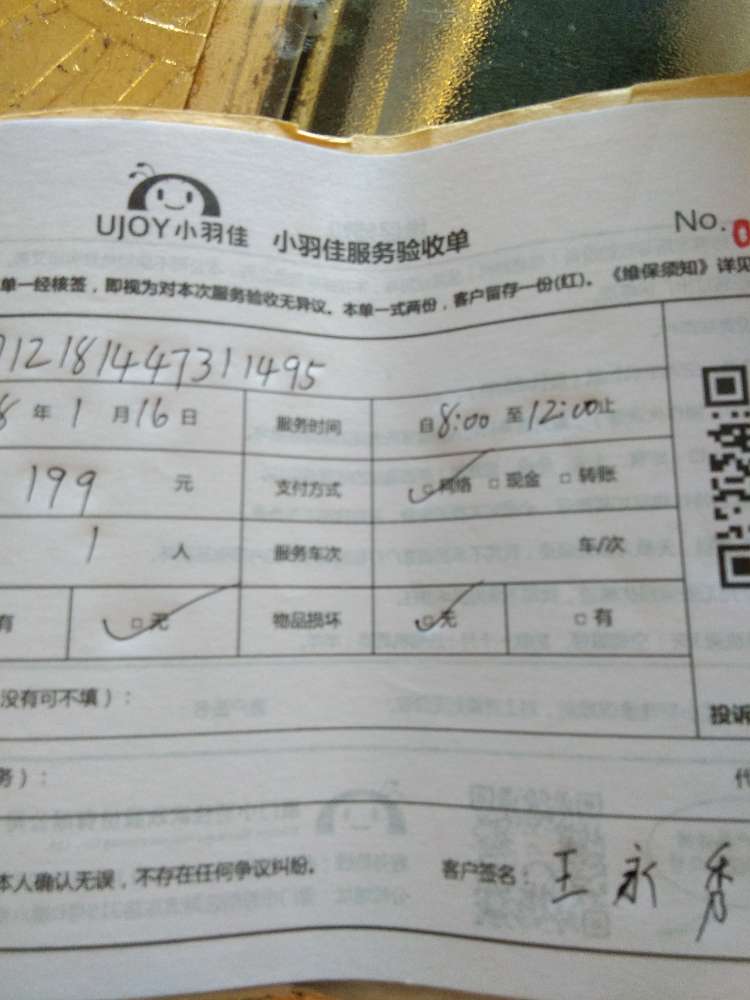 UJOY小羽佳 小羽佳服务验收单 No.0
单一经核签，即视为对本次服务验收无异议。本单一式两份，客户留存一份(红)。《维保须知》详见
121814447311495
8 年 1 月 16 日 服务时间 自 8:00 至 12:00 止
199 元 支付方式 □网络 □现金 □转账
1 人 服务车次 年/次
有 □无 物品损坏 □无 □有
没有可不填）：
投诉
务）：
代
本人确认无误，不存在任何争议纠纷。 客户签名：王永秀